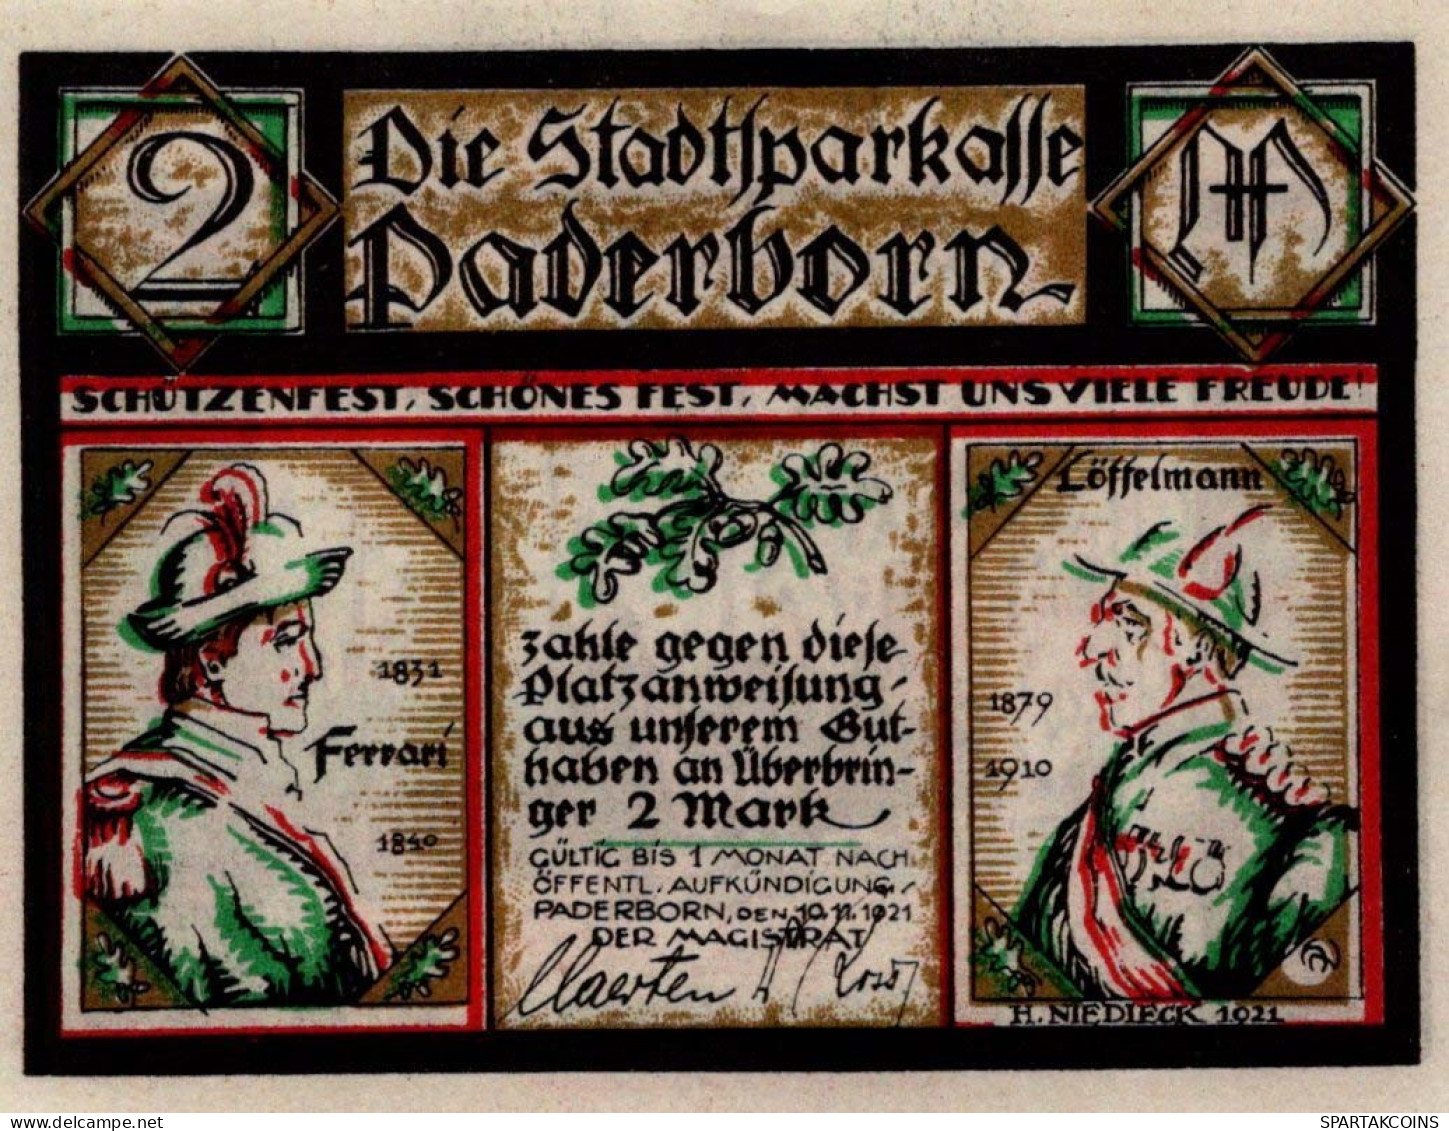 2
Die Stadtsparkasse
M
Paderborn
SCHÜTZENFEST, SCHÖNES FEST, MACHST UNS VIELE FREUDE!
1831
Ferrari
1840
zahle gegen diese
Platzanweisung
aus unserem Gut-
haben an Überbrin-
ger 2 Mark
GÜLTIG BIS 1 MONAT NACH
ÖFFENTL. AUFKÜNDIGUNG.
PADERBORN, DEN 10.11.1921
DER MAGISTRAT
Löffelmann
1879
1910
H. NIEDIECK 1921
SPARTAKCOINS
delcampe.net
SPARTAKCOINS